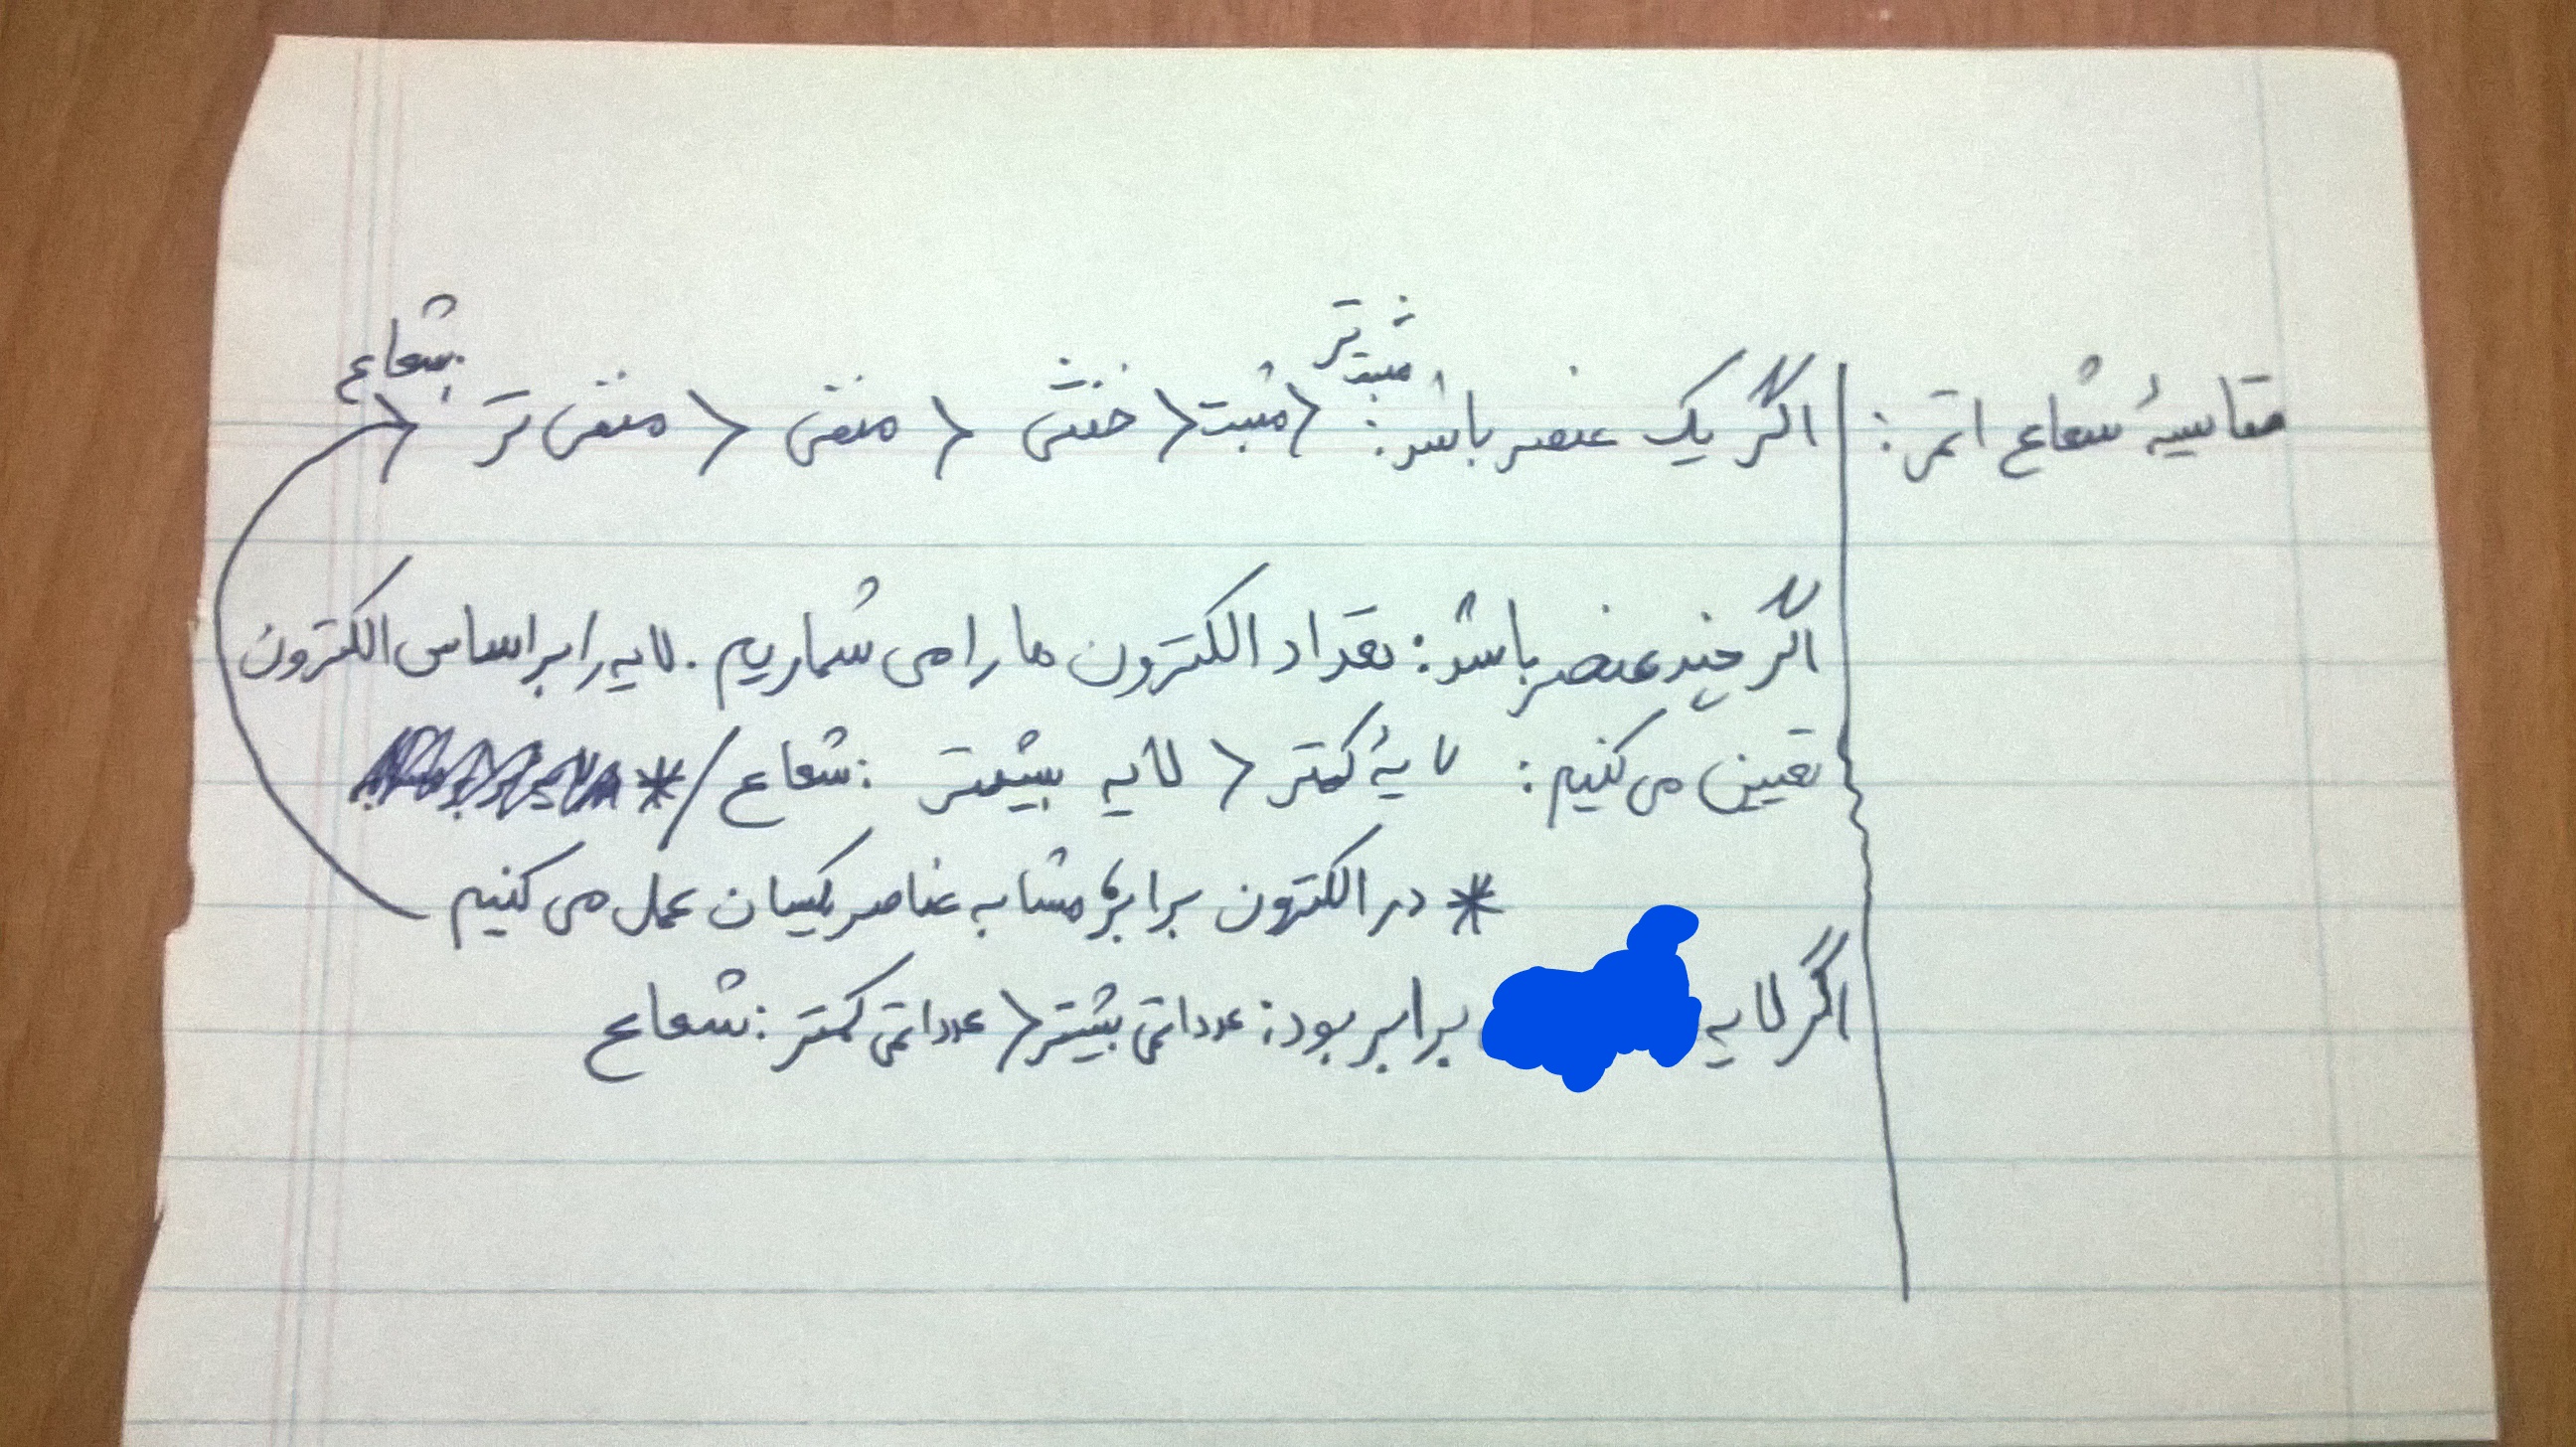 مقاسیهٔ شعاع اتمر: | اگر یک عنصر باشد: مثبت تر > مثبت > خنثی > منفی > منفی تر : شعاع
اگر چند عنصر باشد: تعداد الکترون ها را می شماریم. لایه را بر اساس الکترون
تعیین می کنیم: لایهٔ کمتر > لایه بیشتر : شعاع / *
* در الکترون برابر، مشابه عناصر یکسان عمل می کنیم
اگر لایه برابر بود: عدد اتمی بیشتر > عدد اتمی کمتر : شعاع